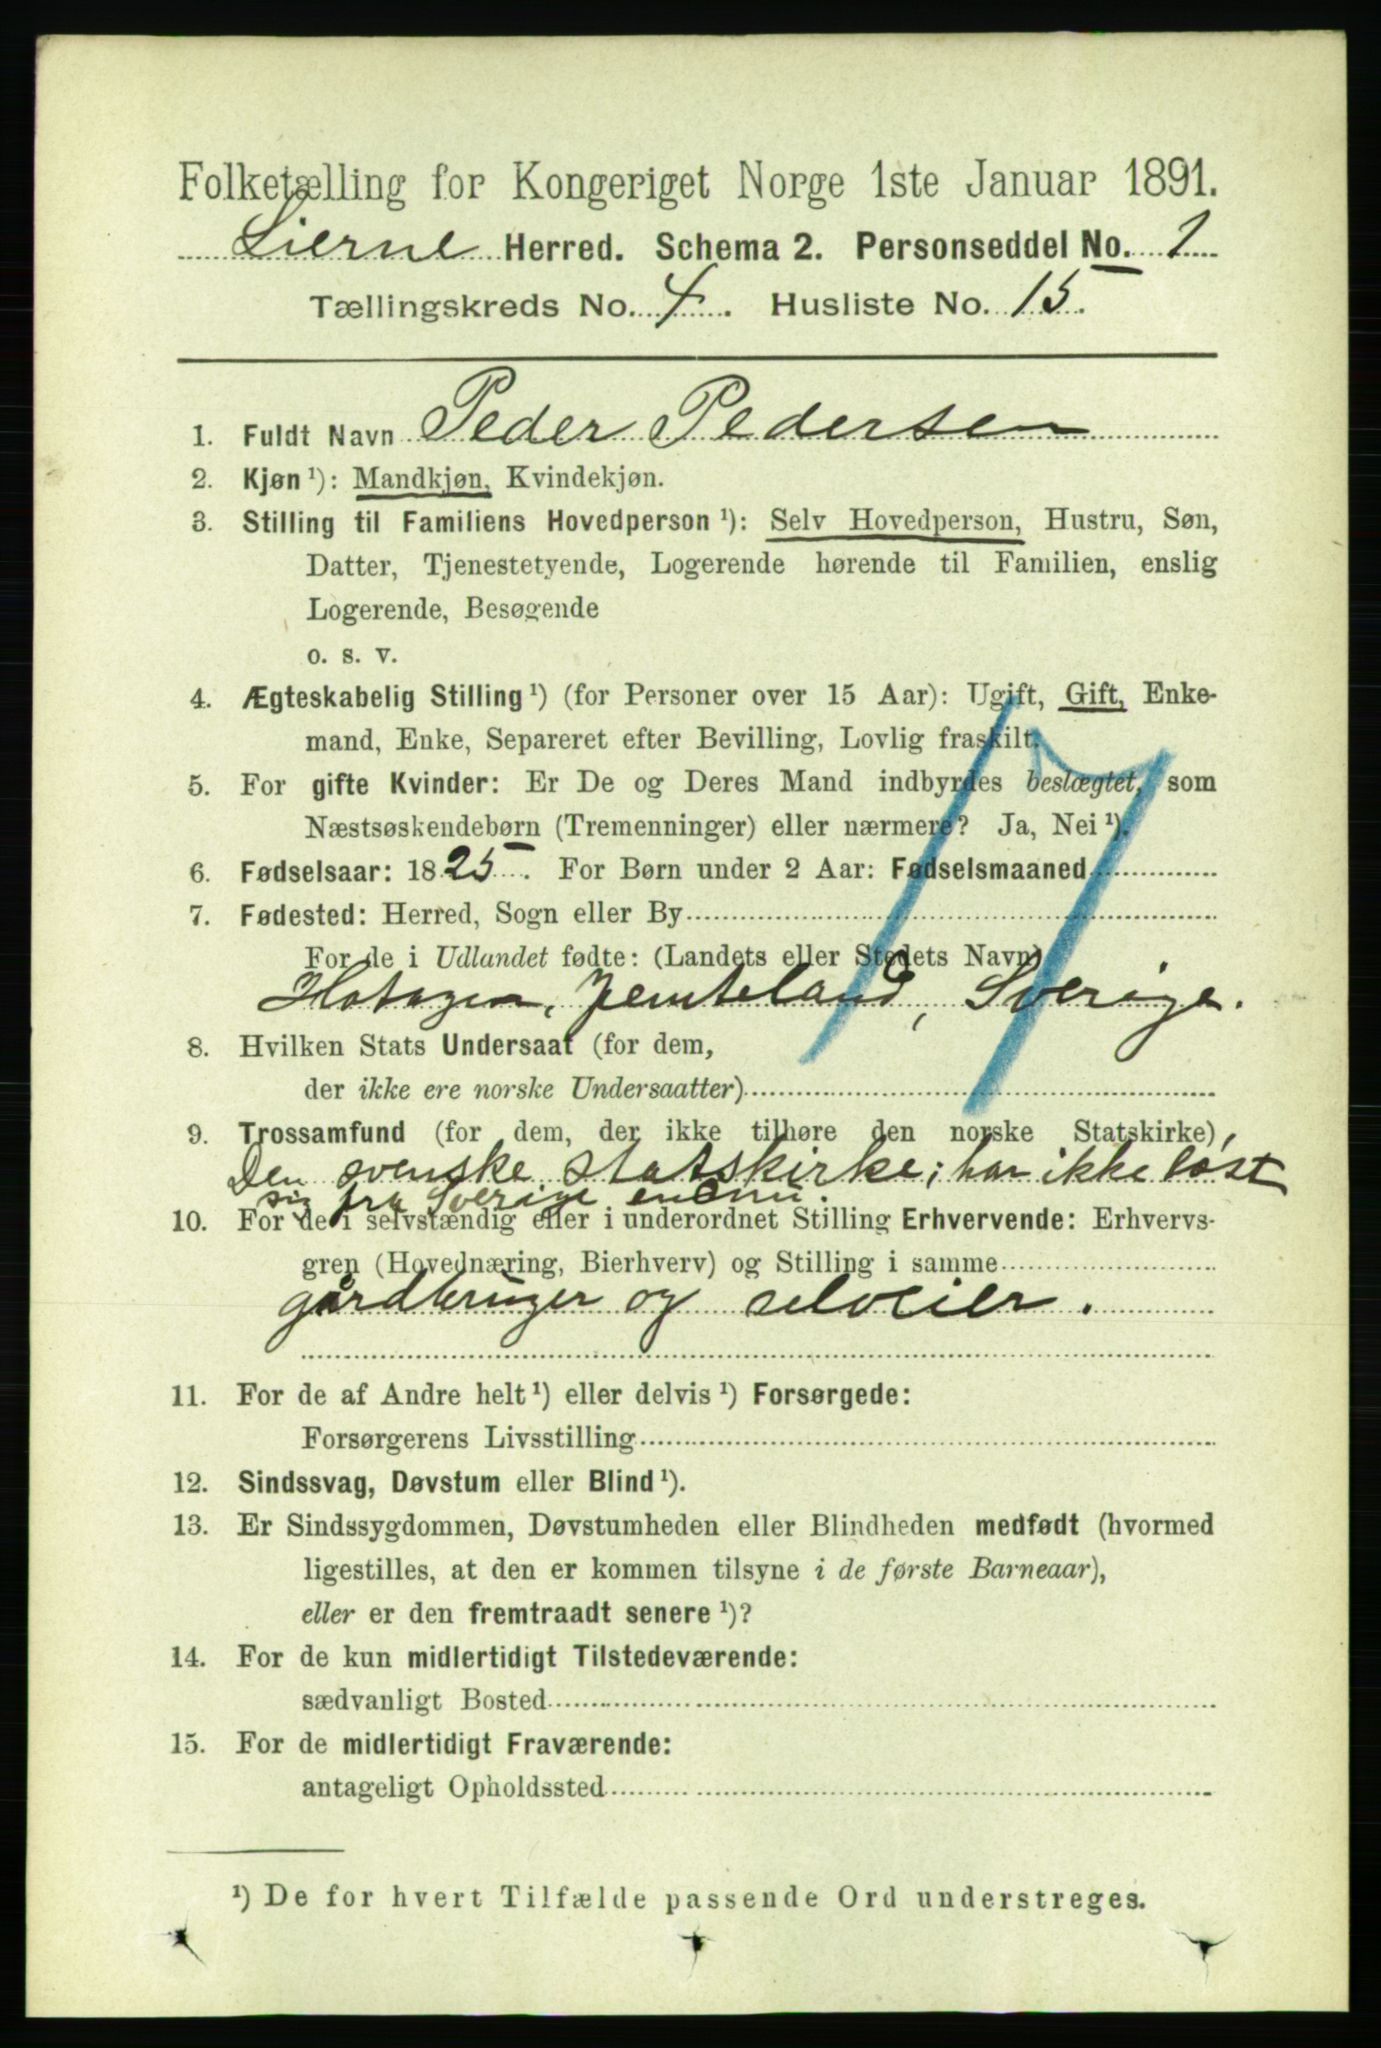 Folketælling for Kongeriget Norge 1ste Januar 1891.
Lierne Herred. Schema 2. Personseddel No. 1
Tællingskreds No. 4. Husliste No. 15.
1. Fuldt Navn Peder Pedersen
2. Kjøn ¹): Mandkjøn, Kvindekjøn.
3. Stilling til Familiens Hovedperson ¹): Selv Hovedperson, Hustru, Søn,
Datter, Tjenestetyende, Logerende hørende til Familien, enslig
Logerende, Besøgende
o. s. v.
4. Ægteskabelig Stilling ¹) (for Personer over 15 Aar): Ugift, Gift, Enke-
mand, Enke, Separeret efter Bevilling, Lovlig fraskilt.
5. For gifte Kvinder: Er De og Deres Mand indbyrdes beslægtet, som
Næstsøskendebørn (Tremenninger) eller nærmere? Ja, Nei ¹).
6. Fødselsaar: 1825. For Børn under 2 Aar: Fødselsmaaned
7. Fødested: Herred, Sogn eller By
For de i Udlandet fødte: (Landets eller Stedets Navn)
Hotagen, Jemteland, Sverige.
8. Hvilken Stats Undersaat (for dem,
der ikke ere norske Undersaatter)
9. Trossamfund (for dem, der ikke tilhøre den norske Statskirke),
Den svenske statskirke; har ikke løst
sig fra Sverige endnu.
10. For de i selvstændig eller i underordnet Stilling Erhvervende: Erhvervs-
gren (Hovednæring, Bierhverv) og Stilling i samme
gårdbruger og selveier.
11. For de af Andre helt ¹) eller delvis ¹) Forsørgede:
Forsørgerens Livsstilling
12. Sindssvag, Døvstum eller Blind ¹).
13. Er Sindssygdommen, Døvstumheden eller Blindheden medfødt (hvormed
ligestilles, at den er kommen tilsyne i de første Barneaar),
eller er den fremtraadt senere ¹)?
14. For de kun midlertidigt Tilstedeværende:
sædvanligt Bosted
15. For de midlertidigt Fraværende:
antageligt Opholdssted
¹) De for hvert Tilfælde passende Ord understreges.